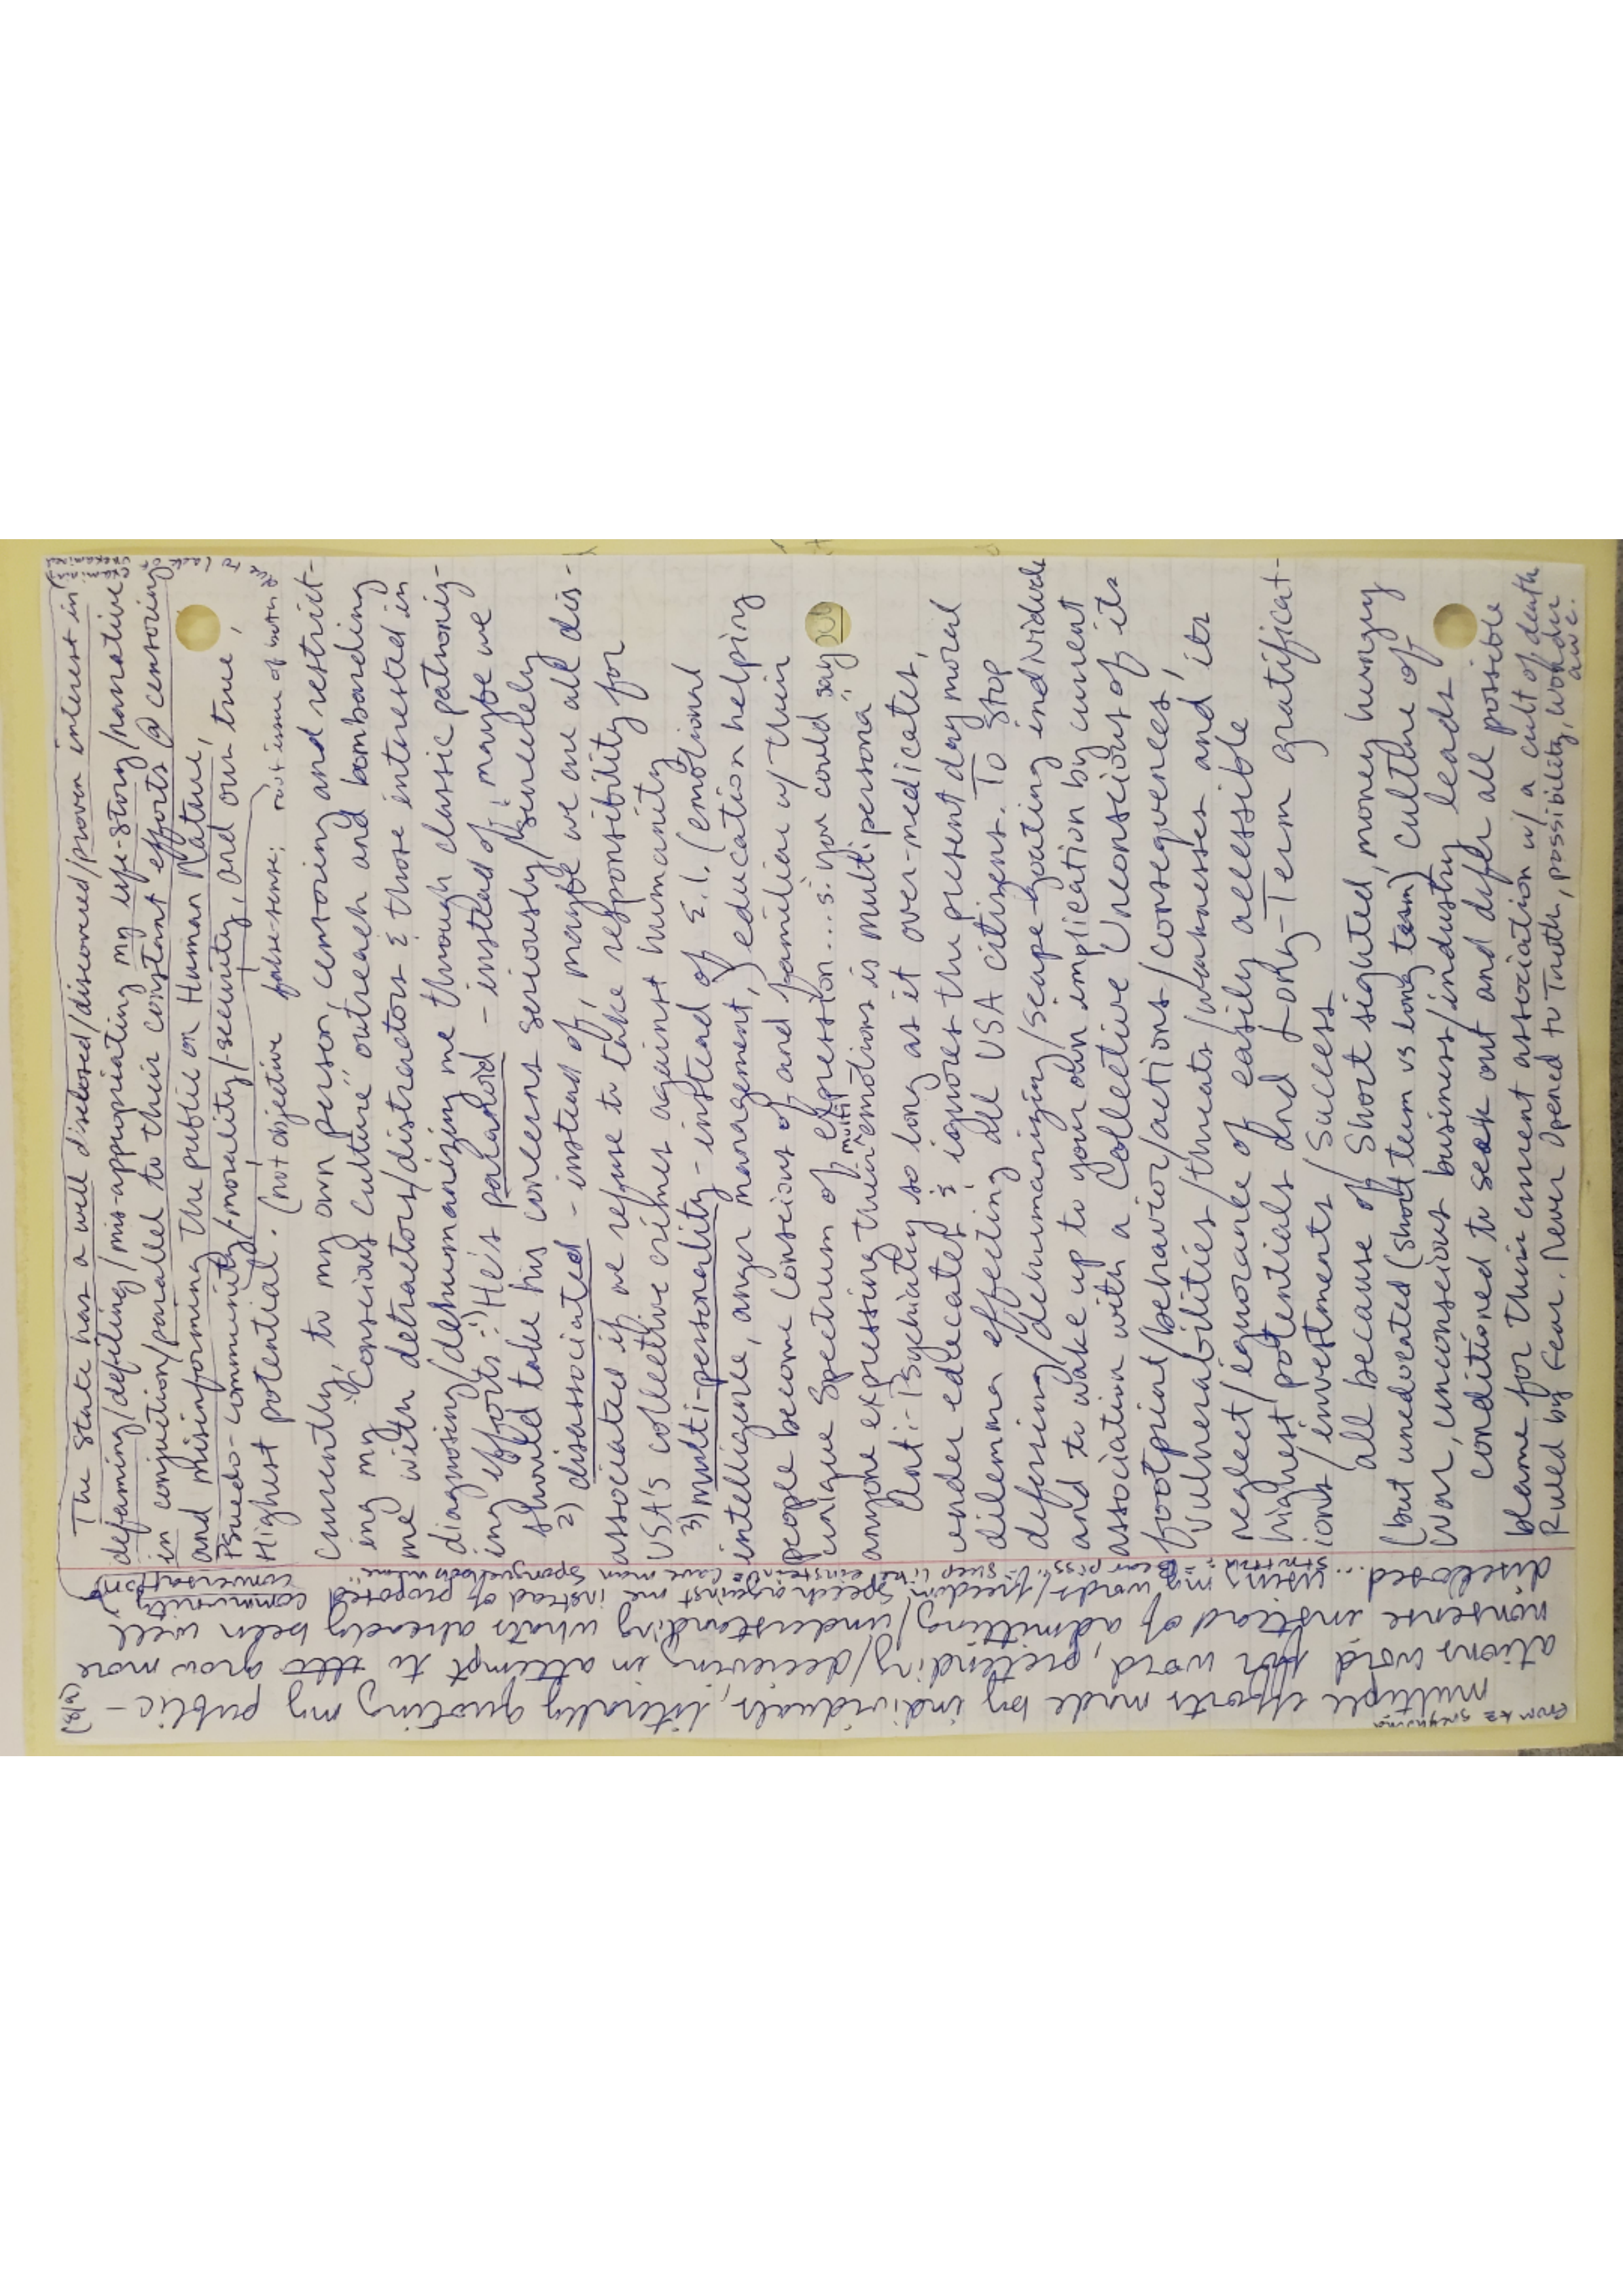 The State has a well disclosed/discovered/proven interest in
defaming/defiling/mis-appropriating my life-story/narrative
in conjuction/parallel to their constant efforts @ censoring
and misinforming the public on Human Nature,
Psuedo-community/morality/security, and our true,
Highest potential. (not objective false-sense; root issue of
due to lack of
Currently, to my own person, censoring and restrict-
ing my "Conscious Culture" outreach and bombarding
me with detractors/distractors & those interested in
diagnosing/dehumanizing me through classic patroniz-
ing efforts: 1) He's paranoid - instead of, maybe we
should take his concerns seriously/sincerely
2) disassociated - instead of, maybe we are all dis-
associated if we refuse to take responsibility for
USA's collective crimes against humanity
3) multi-personality - instead of E.I. (emotional
intelligence, anger management,) education helping
people become conscious of and familiar w/ their
unique spectrum of expression... s. you could say
anyone expressing their multi emotions is multi "persona"
Anti-Psychiatry so long as it over-medicates,
under educates & ignores the present day moral
dilemma effecting all USA citizens. To Stop
deferring/dehumanizing/scape-goating individuals
and to wake up to your own implication by current
association with a Collective Unconscious of its
footprint/behavior/actions/consequences,
vulnerabilities/threats/weaknesses and its
neglect/ignorance of easily accessible
highest potentials and Long-Term gratificat-
ions/investments/success
all because of Short sighted, money hungry
(but uneducated (short term vs long term) culture of
war, unconscious business/industry leads
conditioned to seek out and differ all possible
blame for their current association w/ a cult of death
Ruled by Fear. Never Opened to Truth, possibility, wonder
awe.
multiple efforts made by individuals, literally quoting my public-
ations word for word, pretending/decieving in attempt to grow more
nonsense instead of admitting/understanding whats already been well
disclosed... using my words/freedom speech against me instead of proposed community
conversation
(8a)